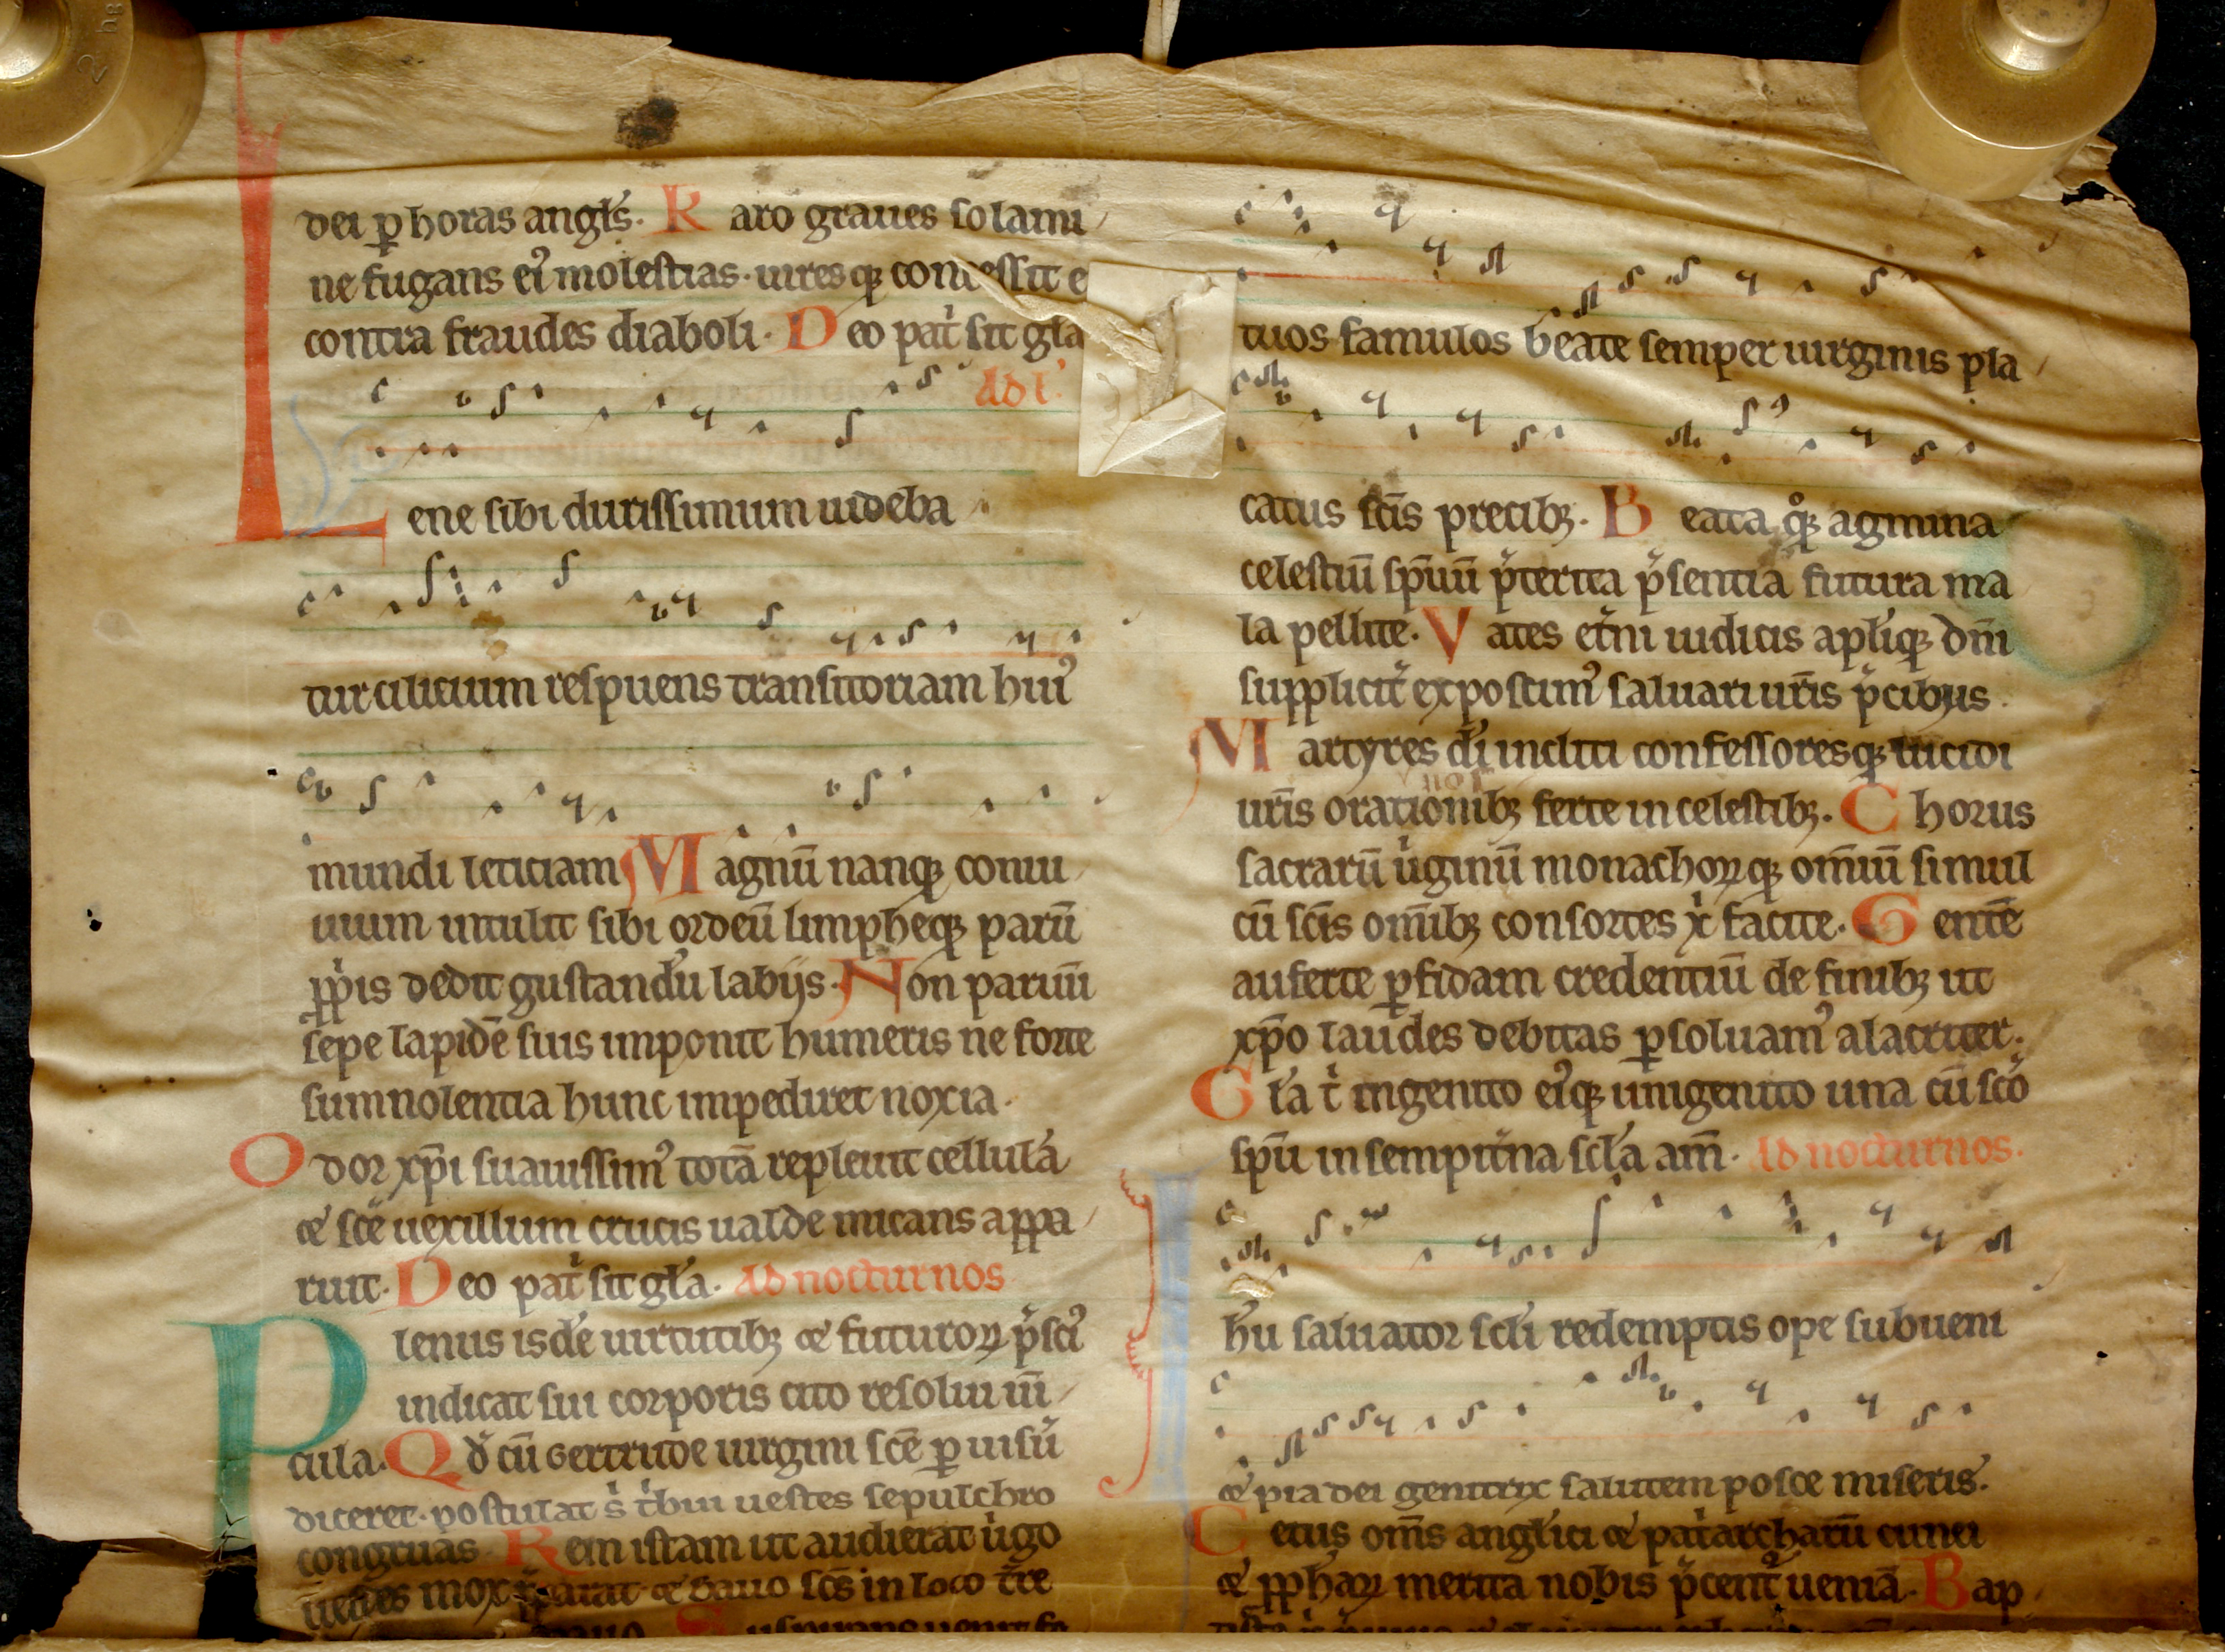 dei ꝑ horas angłs. Raro graues solami
ne fugans ei᷒ molestias. uiresqꝫ concessit e
contra fraudes diaboli. Deo pat̾ sit gła
Ad l'
Lene sibi durissimum uideba
tur cilicium respuens transitoriam hui᷒
mundi leticiam Magnū nanqꝫ conui
uium intulit sibi ordeū limpheqꝫ parū
ꝓpriis dedit gustandū labijs. Non paruū
sepe lapidē suis imponit humeris ne forte
sumnolentia hunc impediret noxia.
Odor xp̄i suauissim᷒ totā repleuit cellulā
& sc̄e uexillum crucis ualde micans appa
ruit. Deo pat̾ sit gła. Ad nocturnos
Plenus isdē uirtutibꝫ & futuroꝝ p̄sci᷒
indicat sui corporis cito resolui uī
cula. Qd̄ cū Gertrude uirgini sc̄e ꝑ uisū
diceret. postulat s̄ t̾bui uestes sepulchro
congruas. Rem istam ut audierat u̾go
sc̄s in loco
tuos famulos beate semper uirginis pla
catus sc̄is precibꝫ. Beata q̊qꝫ agmina
celestiū sp̄uū p̄terita p̄sentia futura ma
la pellite. Vates et̾ni iudicis apłiqꝫ dn̄i
supplicit̾ exposcim᷒ saluari ur̄is p̄cibus.
Martyres dī incliti confessoresqꝫ lucidi
ur̄is orationibꝫ ferte in celestibꝫ. Chorus
nos
sacrarū u̾ginū monachoꝝqꝫ om̄iū simul
cū sc̄is om̄ibꝫ consortes x̄ facite. Gentē
auferte ꝑfidam credentiū de finibꝫ ut
xp̄o laudes debitas ꝑsoluam᷒ alacriter.
Gła t̾ ingenito ei᷒qꝫ unigenito una cū sc̄o
sp̄u in sempit̾na scła am̄. Ad nocturnos.
Ih̄u saluator scłi redemptis ope subueni
& pia dei genitrix salutem posce miseris.
Cetus om̄s angłici & pat̾archarū cunei
& ꝓphaꝝ merita nobis p̄cent̾ ueniā. Bap